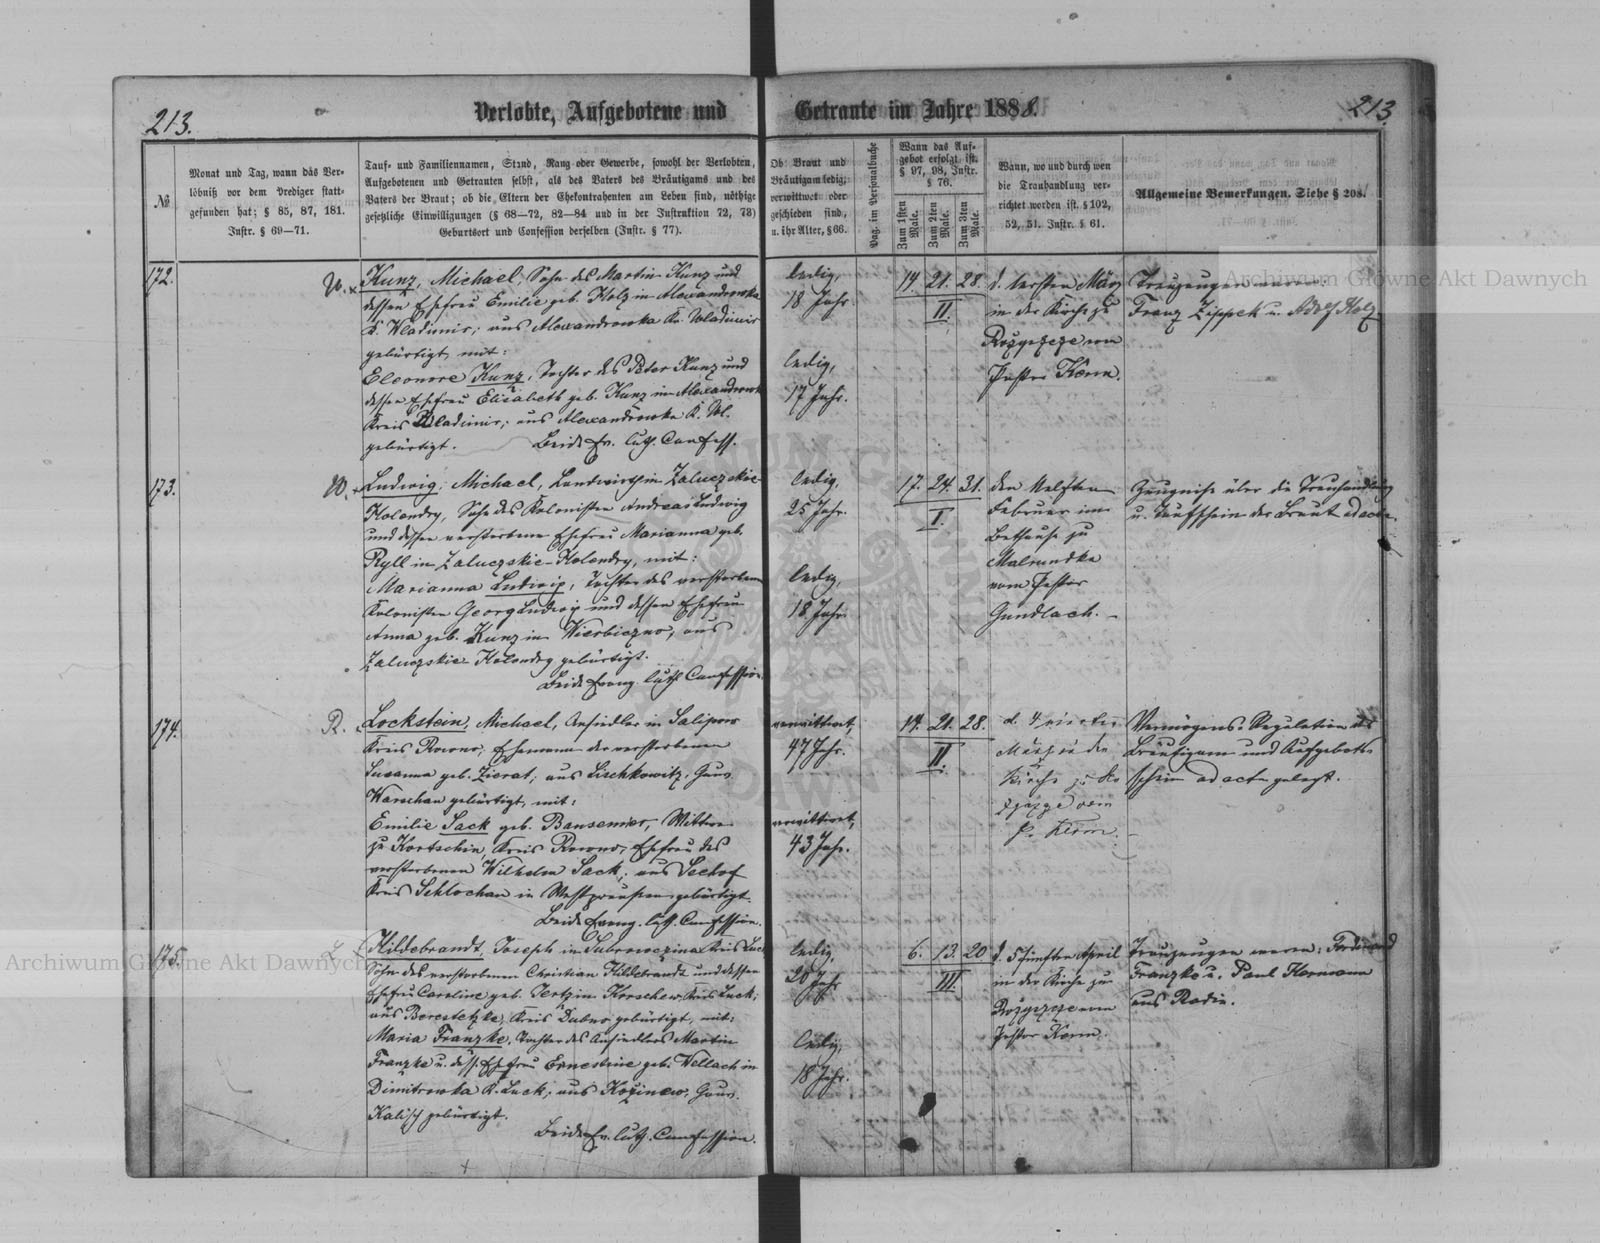 213.
Verlobte, Aufgebotene und
Getraute im Jahre 1888.
213
№
Monat und Tag, wann das Ver-
löbniß vor dem Prediger statt-
gefunden hat; § 85, 87, 181.
Instr. § 69—71.
Tauf- und Familiennamen, Stand, Rang oder Gewerbe, sowohl der Verlobten,
Aufgebotenen und Getrauten selbst, als des Vaters des Bräutigams und des
Vaters der Braut; ob die Eltern der Ehekontrahenten am Leben sind, nöthige
gesetzliche Einwilligungen (§ 68—72, 82—84 und in der Instruktion 72, 73)
Geburtsort und Confession derselben (Instr. § 77).
Ob Braut und
Bräutigam ledig,
verwittwet oder
geschieden sind,
u. ihr Alter, § 66.
Pag. im Personalbuche
Wann das Auf-
gebot erfolgt ist.
§ 97, 98, Instr.
§ 76.
Zum 1sten Male.
Zum 2ten Male.
Zum 3ten Male.
Wann, wo und durch wen
die Trauhandlung ver-
richtet worden ist. § 102,
52, 51. Instr. § 61.
Allgemeine Bemerkungen. Siehe § 208.
172.
W. x Kunz, Michael, Sohn des Martin Kunz und
dessen Ehefrau Emilie geb. Holz in Alexandrowka
K. Wladimir; aus Alexandrowka Kr. Wladimir
gebürtigt, mit:
Eleonore Kunz, Tochter des Peter Kunz und
dessen Ehefrau Elisabeth geb. Kunz in Alexandrowka
Kreis Wladimir; aus Alexandrowka K. Wl.
gebürtigt. Beide Ev. luth. Confess.
ledig,
18 Jahr.
ledig,
17 Jahr.
14. 21. 28.
II.
d. ersten März
in der Kirche zu
Rożyszcze vom
Pastor Kerm.
Trauzeugen waren:
Franz Zippek u. Adolf Holz
173.
W. Ludwig, Michael, Landwirth in Zaluczskie-
Holendry, Sohn des Kolonisten Andreas Ludwig
und dessen verstorbene Ehefrau Marianna geb.
Ryll in Zaluczskie-Holendry, mit:
Marianna Ludwig, Tochter des verstorbenen
Kolonisten Georg Ludwig und dessen Ehefrau
Anna geb. Kunz in Wierbiczno, aus
Zaluczskie-Holendry gebürtigt.
Beide Evang. luth. Confession.
ledig,
25 Jahr.
ledig,
18 Jahr.
17. 24. 31.
I.
den elften
Februar im
Bethause zu
Malrundka
vom Pastor
Gundlach.
Zeugniß über die Trauhandlung
u. Taufschein der Braut ad acta.
174.
R. Lockstein, Michael, Ansiedler in Salipow
Kreis Rowno; Ehemann der verstorbenen
Susanna geb. Zierat; aus Lischkowitz, Gouv.
Warschau gebürtigt, mit:
Emilie Sack geb. Bansemer, Wittwe
zu Kortschin, Kreis Rowno, Ehefrau des
verstorbenen Wilhelm Sack; aus Seehof
Kreis Schlochau in Westpreußen gebürtigt.
Beide Evang. luth. Confession.
verwittwet,
47 Jahr.
verwittwet,
43 Jahr.
14. 21. 28.
II.
März in der
Kirche zu Ro
żyszcze vom
P. Kerm.
Vermögens-Regulation des
Bräutigams und Aufgebots-
schein ad acta gelegt.
175.
L. Hildebrandt, Joseph in Dubrowezina Kreis Luck
Sohn des verstorbenen Christian Hildebrandt und dessen
Ehefrau Caroline geb. Jertz in Korschew, Kreis Luck;
aus Berestetzke, Kreis Dubno gebürtigt, mit:
Maria Franzke, Tochter des Ansiedlers Martin
Franzke u. dess. Ehefrau Ernestine geb. Wellach in
Dimitrowka K. Luck; aus Kozinew, Gouv.
Kalisch gebürtigt.
Beide Ev. luth. Confession.
ledig,
20 Jahr
ledig,
18 Jahr.
6. 13. 20
III.
d. 5 fünften April
in der Kirche zu
Rożyszcze vom
Pastor Kerm.
Trauzeugen waren: Ferdinand
Franzke u. Paul Hermann
aus Radin.
Archiwum Główne Akt Dawnych
Archiwum Główne Akt Dawnych